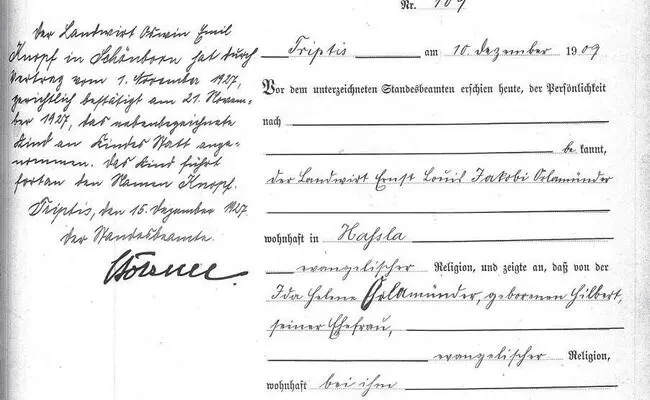 Der Landwirt Oswin Emil
Knopf in Schönborn hat durch
Vertrag vom 1. November 1927,
gerichtlich bestätigt am 21. Novem-
ber 1927, das nebenbezeichnete
Kind an Kindes Statt ange-
nommen. Das Kind führt
fortan den Namen Knopf.
Triptis, den 15. Dezember 1927.
Der Standesbeamte.
Nr. 109
Triptis am 10. Dezember 1909
Vor dem unterzeichneten Standesbeamten erschien heute, der Persönlichkeit
nach
be kannt,
der Landwirt Ernst Louis Jakobi Orlamünder
wohnhaft in Hassla
evangelischer Religion, und zeigte an, daß von der
Ida Helene Orlamünder, geborenen Hilbert,
seiner Ehefrau,
evangelischer Religion,
wohnhaft bei ihm